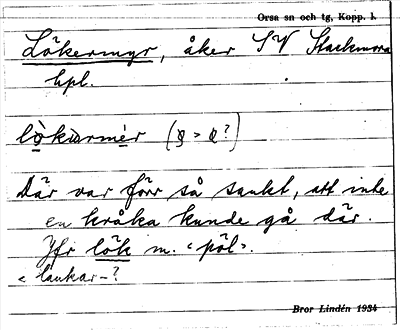 Orsa sn och tg, Kopp. l.
Lökermyr, åker SV Stackmora
hpl.
lòkùrmèr ( > ?)
Där var förr så sankt, att inte
en kråka kunde gå där.
Jfr lök m. "pöl".
< laukar-?
Bror Lindén 1934